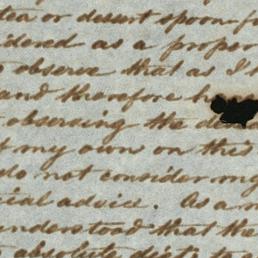 tea or desert spoon f
idered as a proper
observe that as I
and therefore h
observing the de
t my own on this
do not consider my
cial advice. As a m
understood that the
absolute